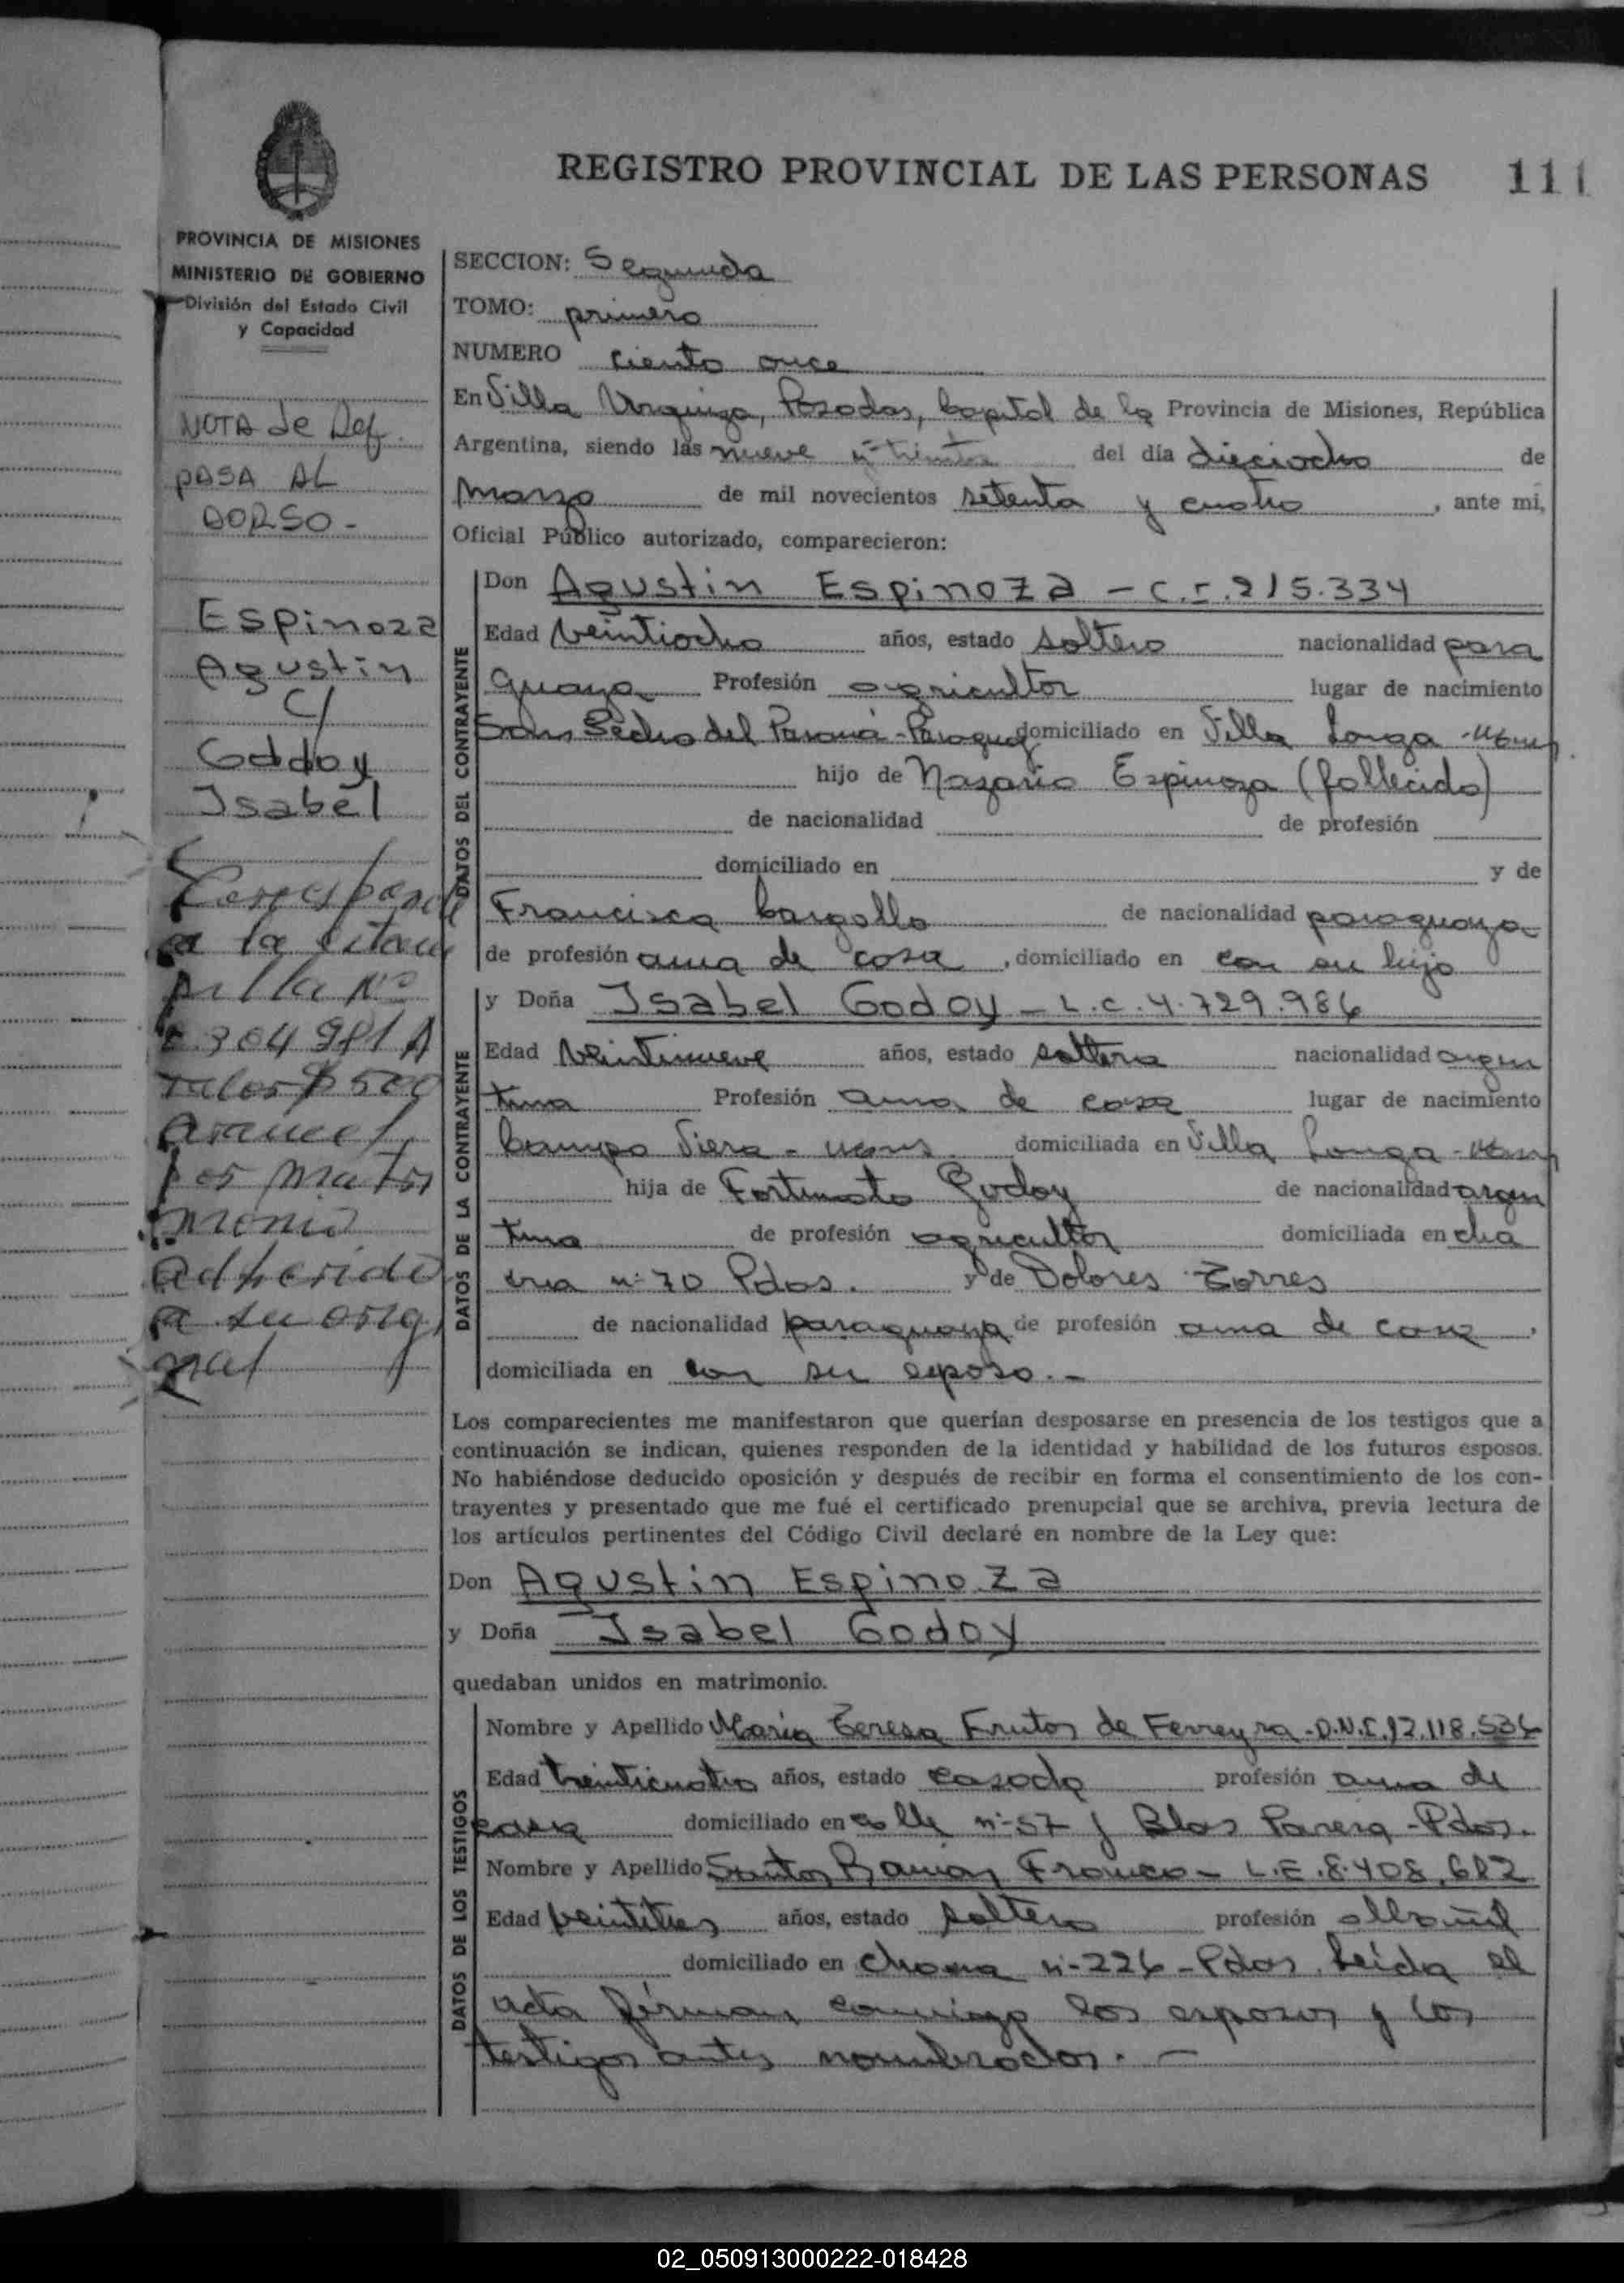 REGISTRO PROVINCIAL DE LAS PERSONAS 111
PROVINCIA DE MISIONES
MINISTERIO DE GOBIERNO
División del Estado Civil
y Capacidad
NOTA de Def.
PASA AL
DORSO -
Espinoza
Agustin
C/
Godoy
Isabel
Corresponde
a la
N°
304981 A
valor $ 500
arancel
por matri
monio
adherido
a su orig
nal
SECCION: Segunda
TOMO: primero
NUMERO ciento once
En Villa Urquiza, Posadas, Capital de la Provincia de Misiones, República
Argentina, siendo las nueve y treinta del día dieciocho de
Marzo de mil novecientos setenta y cuatro, ante mi,
Oficial Público autorizado, comparecieron:
DATOS DEL CONTRAYENTE
Don Agustin Espinoza - C.I. 215.334
Edad veintiocho años, estado soltero nacionalidad para
guaya Profesión agricultor lugar de nacimiento
San Pedro del Paraná - Paraguay domiciliado en Villa Longa -
hijo de Nazario Espinoza (fallecido)
de nacionalidad de profesión
domiciliado en y de
Francisca Gargollo de nacionalidad paraguaya
de profesión ama de casa, domiciliado en con su hijo
DATOS DE LA CONTRAYENTE
y Doña Isabel Godoy - L.C. 4.729.986
Edad veintinueve años, estado soltera nacionalidad argen
tina Profesión ama de casa lugar de nacimiento
Campo Viera - domiciliada en Villa Longa -
hija de Fortunato Godoy de nacionalidad argen
tina de profesión agricultor domiciliada en cha
cra n° 70 Pdas. y de Dolores Torres
de nacionalidad paraguaya de profesión ama de casa,
domiciliada en con su esposo. -
Los comparecientes me manifestaron que querían desposarse en presencia de los testigos que a
continuación se indican, quienes responden de la identidad y habilidad de los futuros esposos.
No habiéndose deducido oposición y después de recibir en forma el consentimiento de los con-
trayentes y presentado que me fué el certificado prenupcial que se archiva, previa lectura de
los artículos pertinentes del Código Civil declaré en nombre de la Ley que:
Don Agustin Espinoza
y Doña Isabel Godoy
quedaban unidos en matrimonio.
DATOS DE LOS TESTIGOS
Nombre y Apellido Maria Teresa Frutos de Ferreyra - D.N.I. 12.118.536
Edad treinticuatro años, estado casada profesión ama de
casa domiciliado en calle n° 57 y Blas Parera - Pdas.
Nombre y Apellido Santos Ramon Franco - L.E. 8.408.682
Edad veintitres años, estado soltero profesión albañil
domiciliado en chacra n° 226 - Pdas. Leída el
acta firman conmigo los esposos y los
testigos antes nombrados. -
02_050913000222-018428